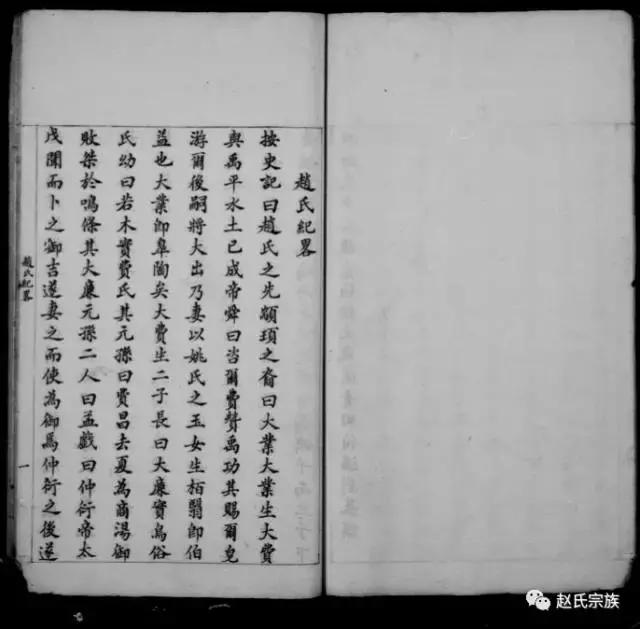 趙氏紀畧
按史記曰趙氏之先顓頊之裔曰大業大業生大費
與禹平水土已成帝舜曰咨爾費贊禹功其賜爾皂
游爾後嗣將大出乃妻以姚氏之玉女生栢翳即伯
益也大業即臯陶矣大費生二子長曰大廉實鳥俗
氏幼曰若木實費氏其元孫曰費昌去夏為商湯御
敗桀於鳴條其大廉元孫二人曰孟戲曰仲衍帝太
戊聞而卜之御吉遂妻之而使為御焉仲衍之後遂
趙氏紀畧
一
赵氏宗族